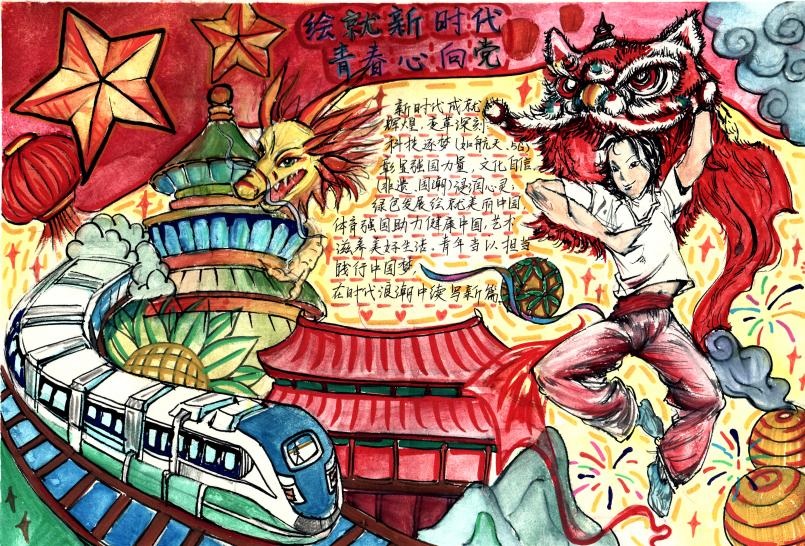 绘就新时代
青春心向党
新时代成就
辉煌,变革深刻
科技逐梦(如航天、5G)
彰显强国力量,文化自信
(非遗、国潮)浸润心灵;
绿色发展绘就美丽中国,
体育强国助力健康中国,艺术
滋养美好生活。青年当以担当
践行中国梦,
在时代浪潮中续写新篇。